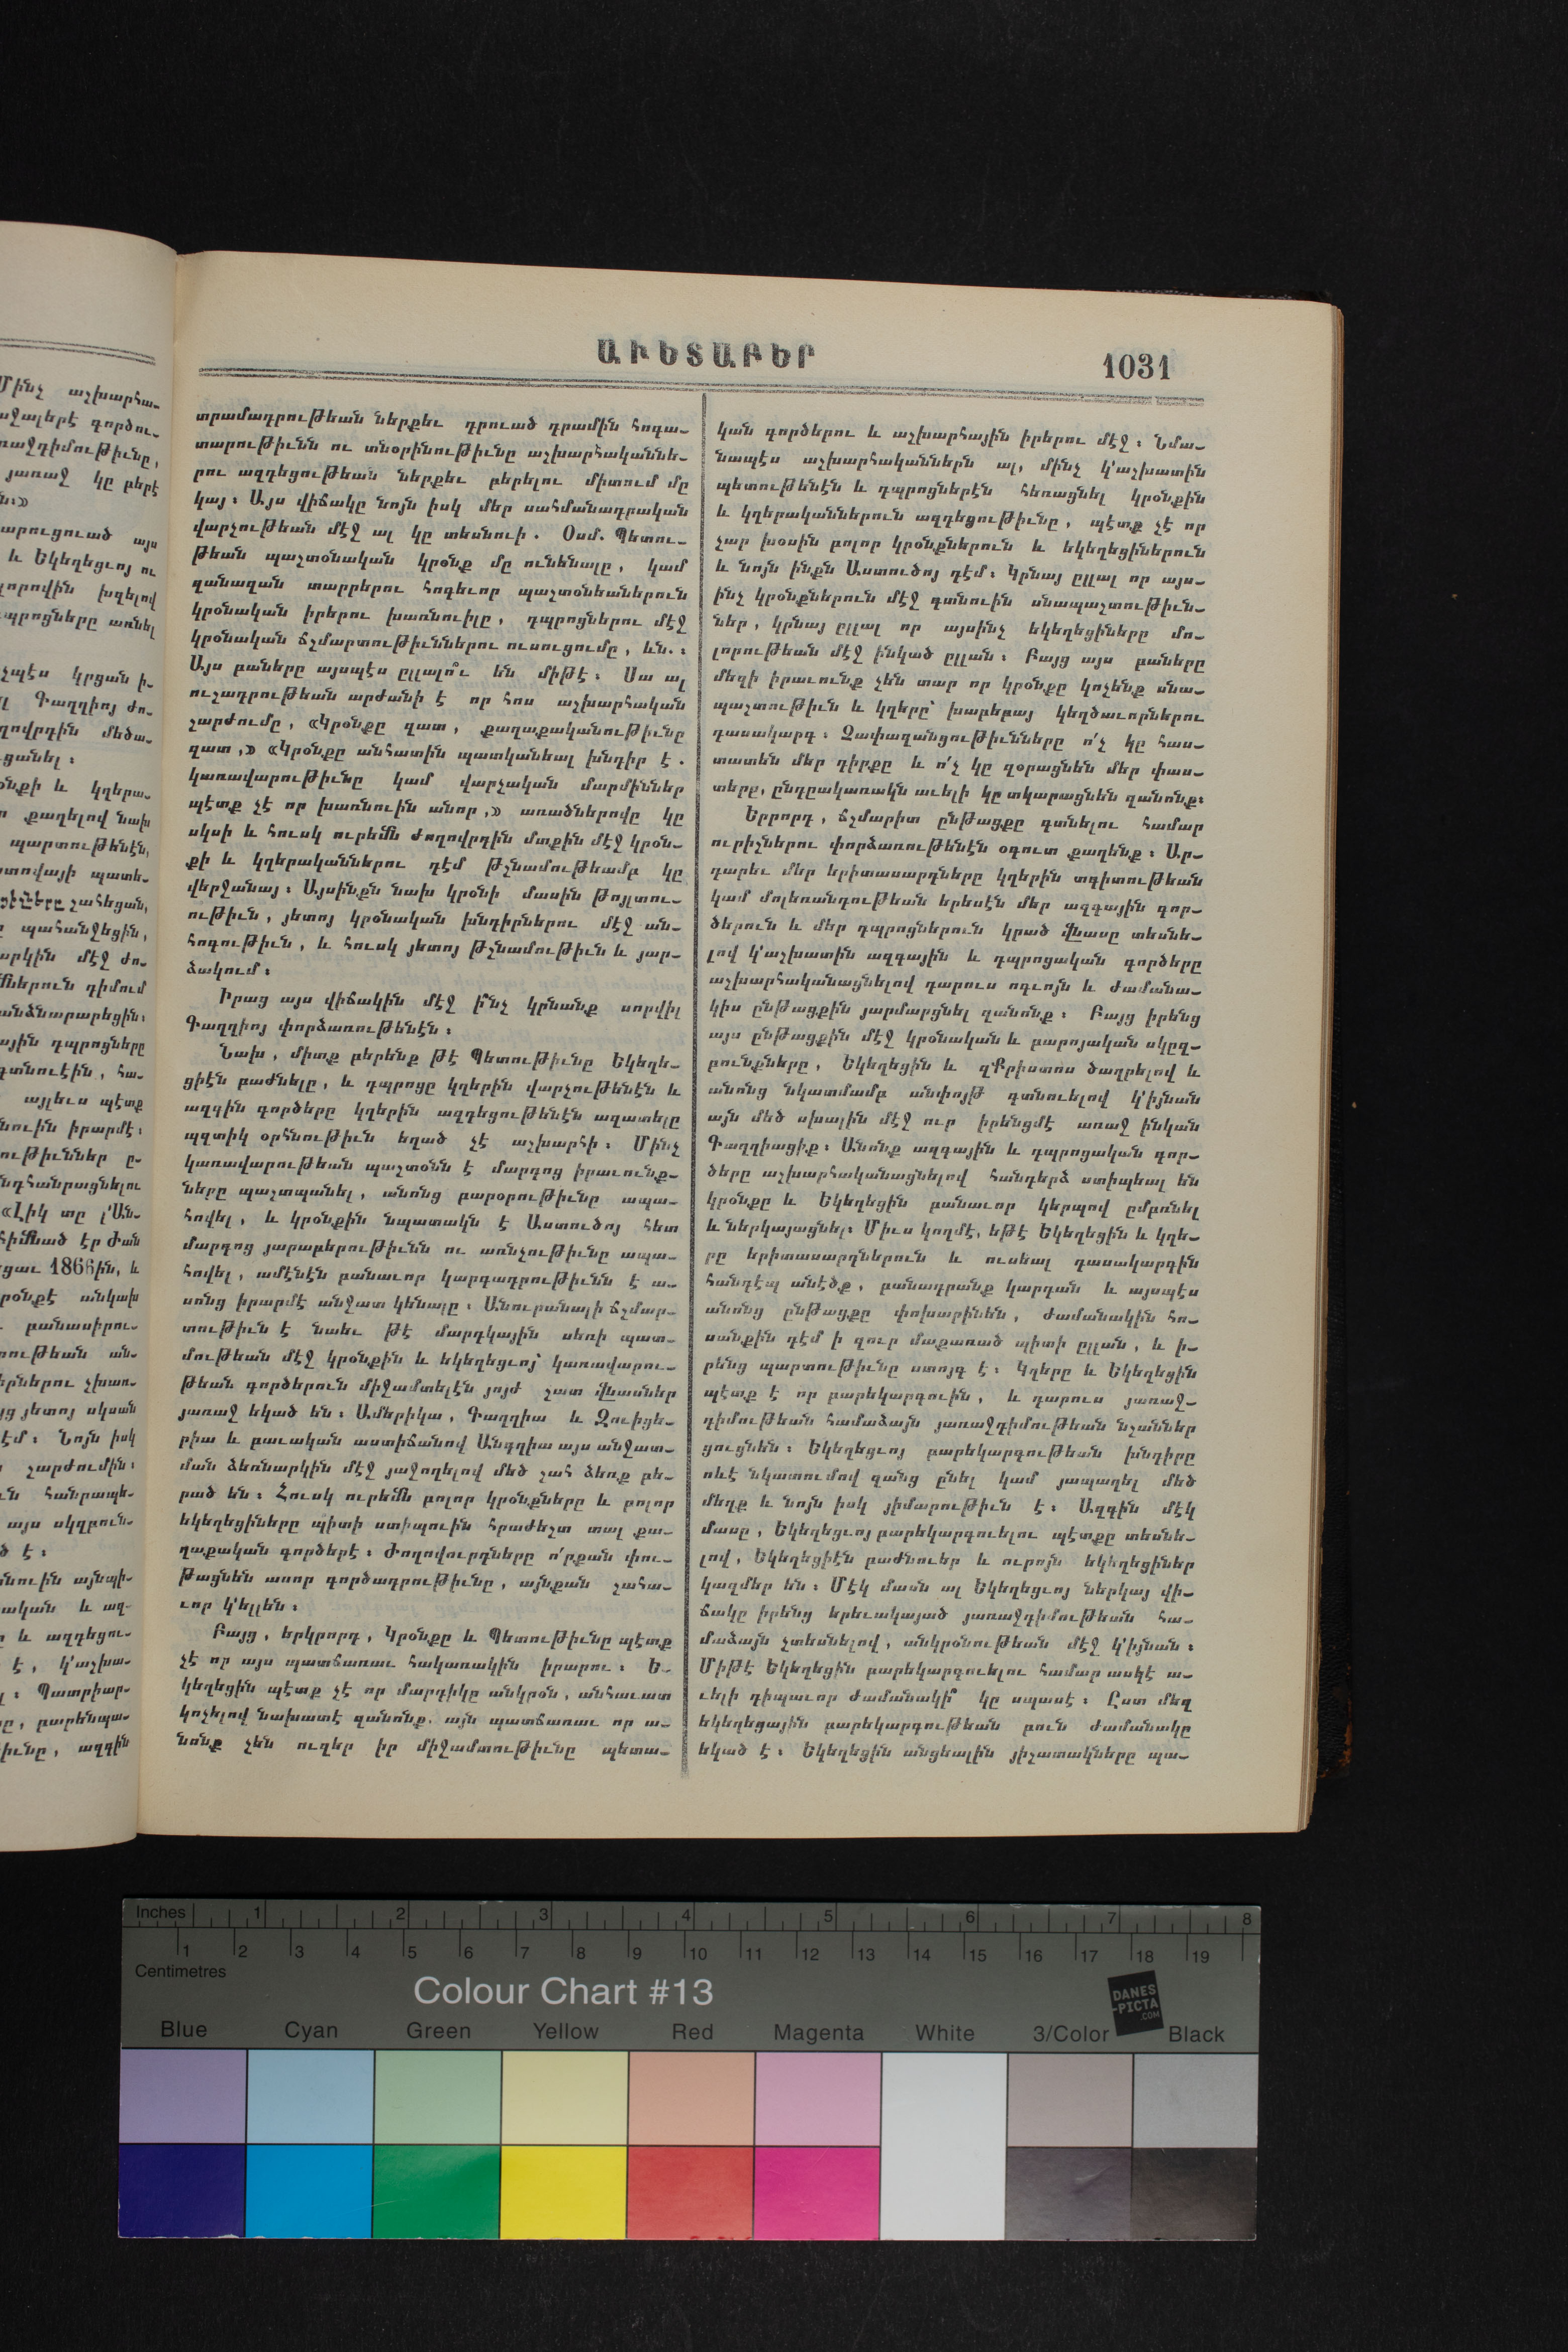 ԱՒԵՏԱԲԵՐ
1031
տրամադրութեան ներքեւ դրուած դրամին հոգա-
տարութիւնն ու տնօրինութիւնը աշխարհականնե-
րու ազդեցութեան ներքեւ բերելու միտում մը
կայ։ Այս վիճակը նոյն իսկ մեր սահմանադրական
վարչութեան մէջ ալ կը տեսնուի. Օսմ. Պետու-
թեան պաշտօնական կրօնք մը ունենալը, կամ
զանազան տարրերու հոգեւոր պաշտօնեաներուն
կրօնական իրերու խառնուիլը, դպրոցներու մէջ
կրօնական ճշմարտութիւններու ուսուցումը, ևն.։
Այս բաները այսպէս ըլլալո՞ւ են միթէ։ Սա ալ
ուշադրութեան արժանի է որ հոս աշխարհական
շարժումը, «Կրօնքը զատ, քաղաքականութիւնը
զատ,» «Կրօնքը անհատին պատկանեալ խնդիր է.
կառավարութիւնը կամ վարչական մարմիններ
պէտք չէ որ խառնուին անոր,» առածներովը կը
սկսի և հուսկ ուրեմն ժողովրդին մտքին մէջ կրօն-
քի և կղերականներու դէմ թշնամութեամբ կը
վերջանայ։ Այսինքն նախ կրօնի մասին թոյլտու-
ութիւն, յետոյ կրօնական խնդիրներու մէջ ան-
հոգութիւն, և հուսկ յետոյ թշնամութիւն և յար-
ձակում։
Իրաց այս վիճակին մէջ ի՞նչ կրնանք սորվիլ
Գաղղիոյ փորձառութենէն։
Նախ, միտք բերենք թէ Պետութիւնը Եկեղե-
ցիէն բաժնելը, և դպրոցը կղերին վարչութենէն և
ազգին գործերը կղերին ազդեցութենէն ազատելը
պզտիկ օրհնութիւն եղած չէ աշխարհի։ Մինչ
կառավարութեան պաշտօնն է մարդոց իրաւունք-
ները պաշտպանել, անոնց բարօրութիւնը ապա-
հովել, և կրօնքին նպատակն է Աստուծոյ հետ
մարդոց յարաբերութիւնն ու առնչութիւնը ապա-
հովել, ամէնէն բանաւոր կարգադրութիւնն է ա-
սոնց իրարմէ անջատ կենալը։ Անուրանալի ճշմար-
տութիւն է նաեւ թէ մարդկային սեռի պատ-
մութեան մէջ կրօնքին և եկեղեցւոյ՝ կառավարու-
թեան գործերուն միջամտելէն յոյժ շատ վնասներ
յառաջ եկած են։ Ամերիկա, Գաղղիա և Զուիցե-
րիա և բաւական աստիճանով Անգղիա այս անջատ-
ման ձեռնարկին մէջ յաջողելով մեծ շահ ձեռք բե-
րած են։ Հուսկ ուրեմն բոլոր կրօնքները և բոլոր
եկեղեցիները պիտի ստիպուին հրաժեշտ տալ քա-
ղաքական գործերէ։ Ժողովուրդները ո՛րքան փու-
թացնեն ասոր գործադրութիւնը, այնքան շահա-
ւոր կ'ելլեն։
Բայց, երկրորդ, Կրօնքը և Պետութիւնը պէտք
չէ որ այս պատճառաւ հակառակին իրարու։ Ե-
կեղեցին պէտք չէ որ մարդիկը անկրօն, անհաւատ
կոչելով նախատէ զանոնք. այն պատճառաւ որ ա-
նոնք չեն ուզեր իր միջամտութիւնը պետա-
կան գործերու և աշխարհային իրերու մէջ։ Նմա-
նապէս աշխարհականներն ալ, մինչ կ'աշխատին
պետութենէն և դպրոցներէն հեռացնել կրօնքին
և կղերականներուն ազդեցութիւնը, պէտք չէ որ
չար խօսին բոլոր կրօնքներուն և եկեղեցիներուն
և նոյն ինքն Աստուծոյ դէմ։ Կրնայ ըլլալ որ այս-
ինչ կրօնքներուն մէջ գտնուին սնապաշտութիւն-
ներ, կրնայ ըլլալ որ այսինչ եկեղեցիները մո-
լորութեան մէջ ինկած ըլլան։ Բայց այս բաները
մեզի իրաւունք չեն տար որ կրօնքը կոչենք սնա-
պաշտութիւն և կղերը՝ խաբեբայ կեղծաւորներու
դասակարգ։ Չափազանցութիւնները ո՛չ կը հաս-
տատեն մեր դիրքը և ո՛չ կը զօրացնեն մեր փաս-
տերը, ընդըակառակն աւելի կը տկարացնեն զանոնք։
Երրորդ, ճշմարիտ ընթացքը գտնելու համար
ուրիշներու փորձառութենէն օգուտ քաղենք։ Ար-
դարեւ մեր երիտասարդները կղերին տգիտութեան
կամ մոլեռանդութեան երեսէն մեր ազգային գոր-
ծերուն և մեր դպրոցներուն կրած վնասը տեսնե-
լով կ'աշխատին ազգային և դպրոցական գործերը
աշխարհականացնելով դարուս ոգւոյն և ժամանա-
կիս ընթացքին յարմարցնել զանոնք։ Բայց իրենց
այս ընթացքին մէջ կրօնական և բարոյական սկըզ-
բունքները, Եկեղեցին և զՔրիստոս ծաղրելով և
անոնց նկատմամբ անփոյթ գտնուելով կ'իյնան
այն մեծ սխալին մէջ ուր իրենցմէ առաջ ինկան
Գաղղիացիք։ Անոնք ազգային և դպրոցական գոր-
ծերը աշխարհականացնելով հանդերձ ստիպեալ են
կրօնքը և Եկեղեցին բանաւոր կերպով ըմբռնել
և ներկայացնել։ Միւս կողմէ, եթէ Եկեղեցին և կղե-
րը երիտասարդներուն և ուսեալ դասակարգին
հանդէպ անէծք, բանադրանք կարդան և այսպէս
անոնց ընթացքը փոխարինեն, ժամանակին հո-
սանքին դէմ ի զուր մաքառած պիտի ըլլան, և ի-
րենց պարտութիւնը ստոյգ է։ Կղերը և Եկեղեցին
պէտք է որ բարեկարգուին, և դարուս յառաջ-
դիմութեան համաձայն յառաջդիմութեան նշաններ
ցուցնեն։ Եկեղեցւոյ բարեկարգութեան խնդիրը
ոևէ նկատումով զանց ընել կամ յապաղել մեծ
մեղք և նոյն իսկ յիմարութիւն է։ Ազգին մէկ
մասը, Եկեղեցւոյ բարեկարգուելու պէտքը տեսնե-
լով, Եկեղեցիէն բաժնուեր և ուրոյն եկեղեցիներ
կազմեր են։ Մէկ մասն ալ Եկեղեցւոյ ներկայ վի-
ճակը իրենց երեւակայած յառաջդիմութեան հա-
մաձայն չտեսնելով, անկրօնութեան մէջ կ'իյնան։
Միթէ Եկեղեցին բարեկարգուելու համար ասկէ ա-
ւելի դիպաւոր ժամանակի՞ կը սպասէ։ Ըստ մեզ
եկեղեցային բարեկարգութեան բուն ժամանակը
եկած է։ Եկեղեցին անցեալին յիշատակները պա-
Inches 1 2 3 4 5 6 7 8
1 2 3 4 5 6 7 8 9 10 11 12 13 14 15 16 17 18 19
Centimetres
Colour Chart #13
DANES
-PICTA
.COM
Blue Cyan Green Yellow Red Magenta White 3/Color Black